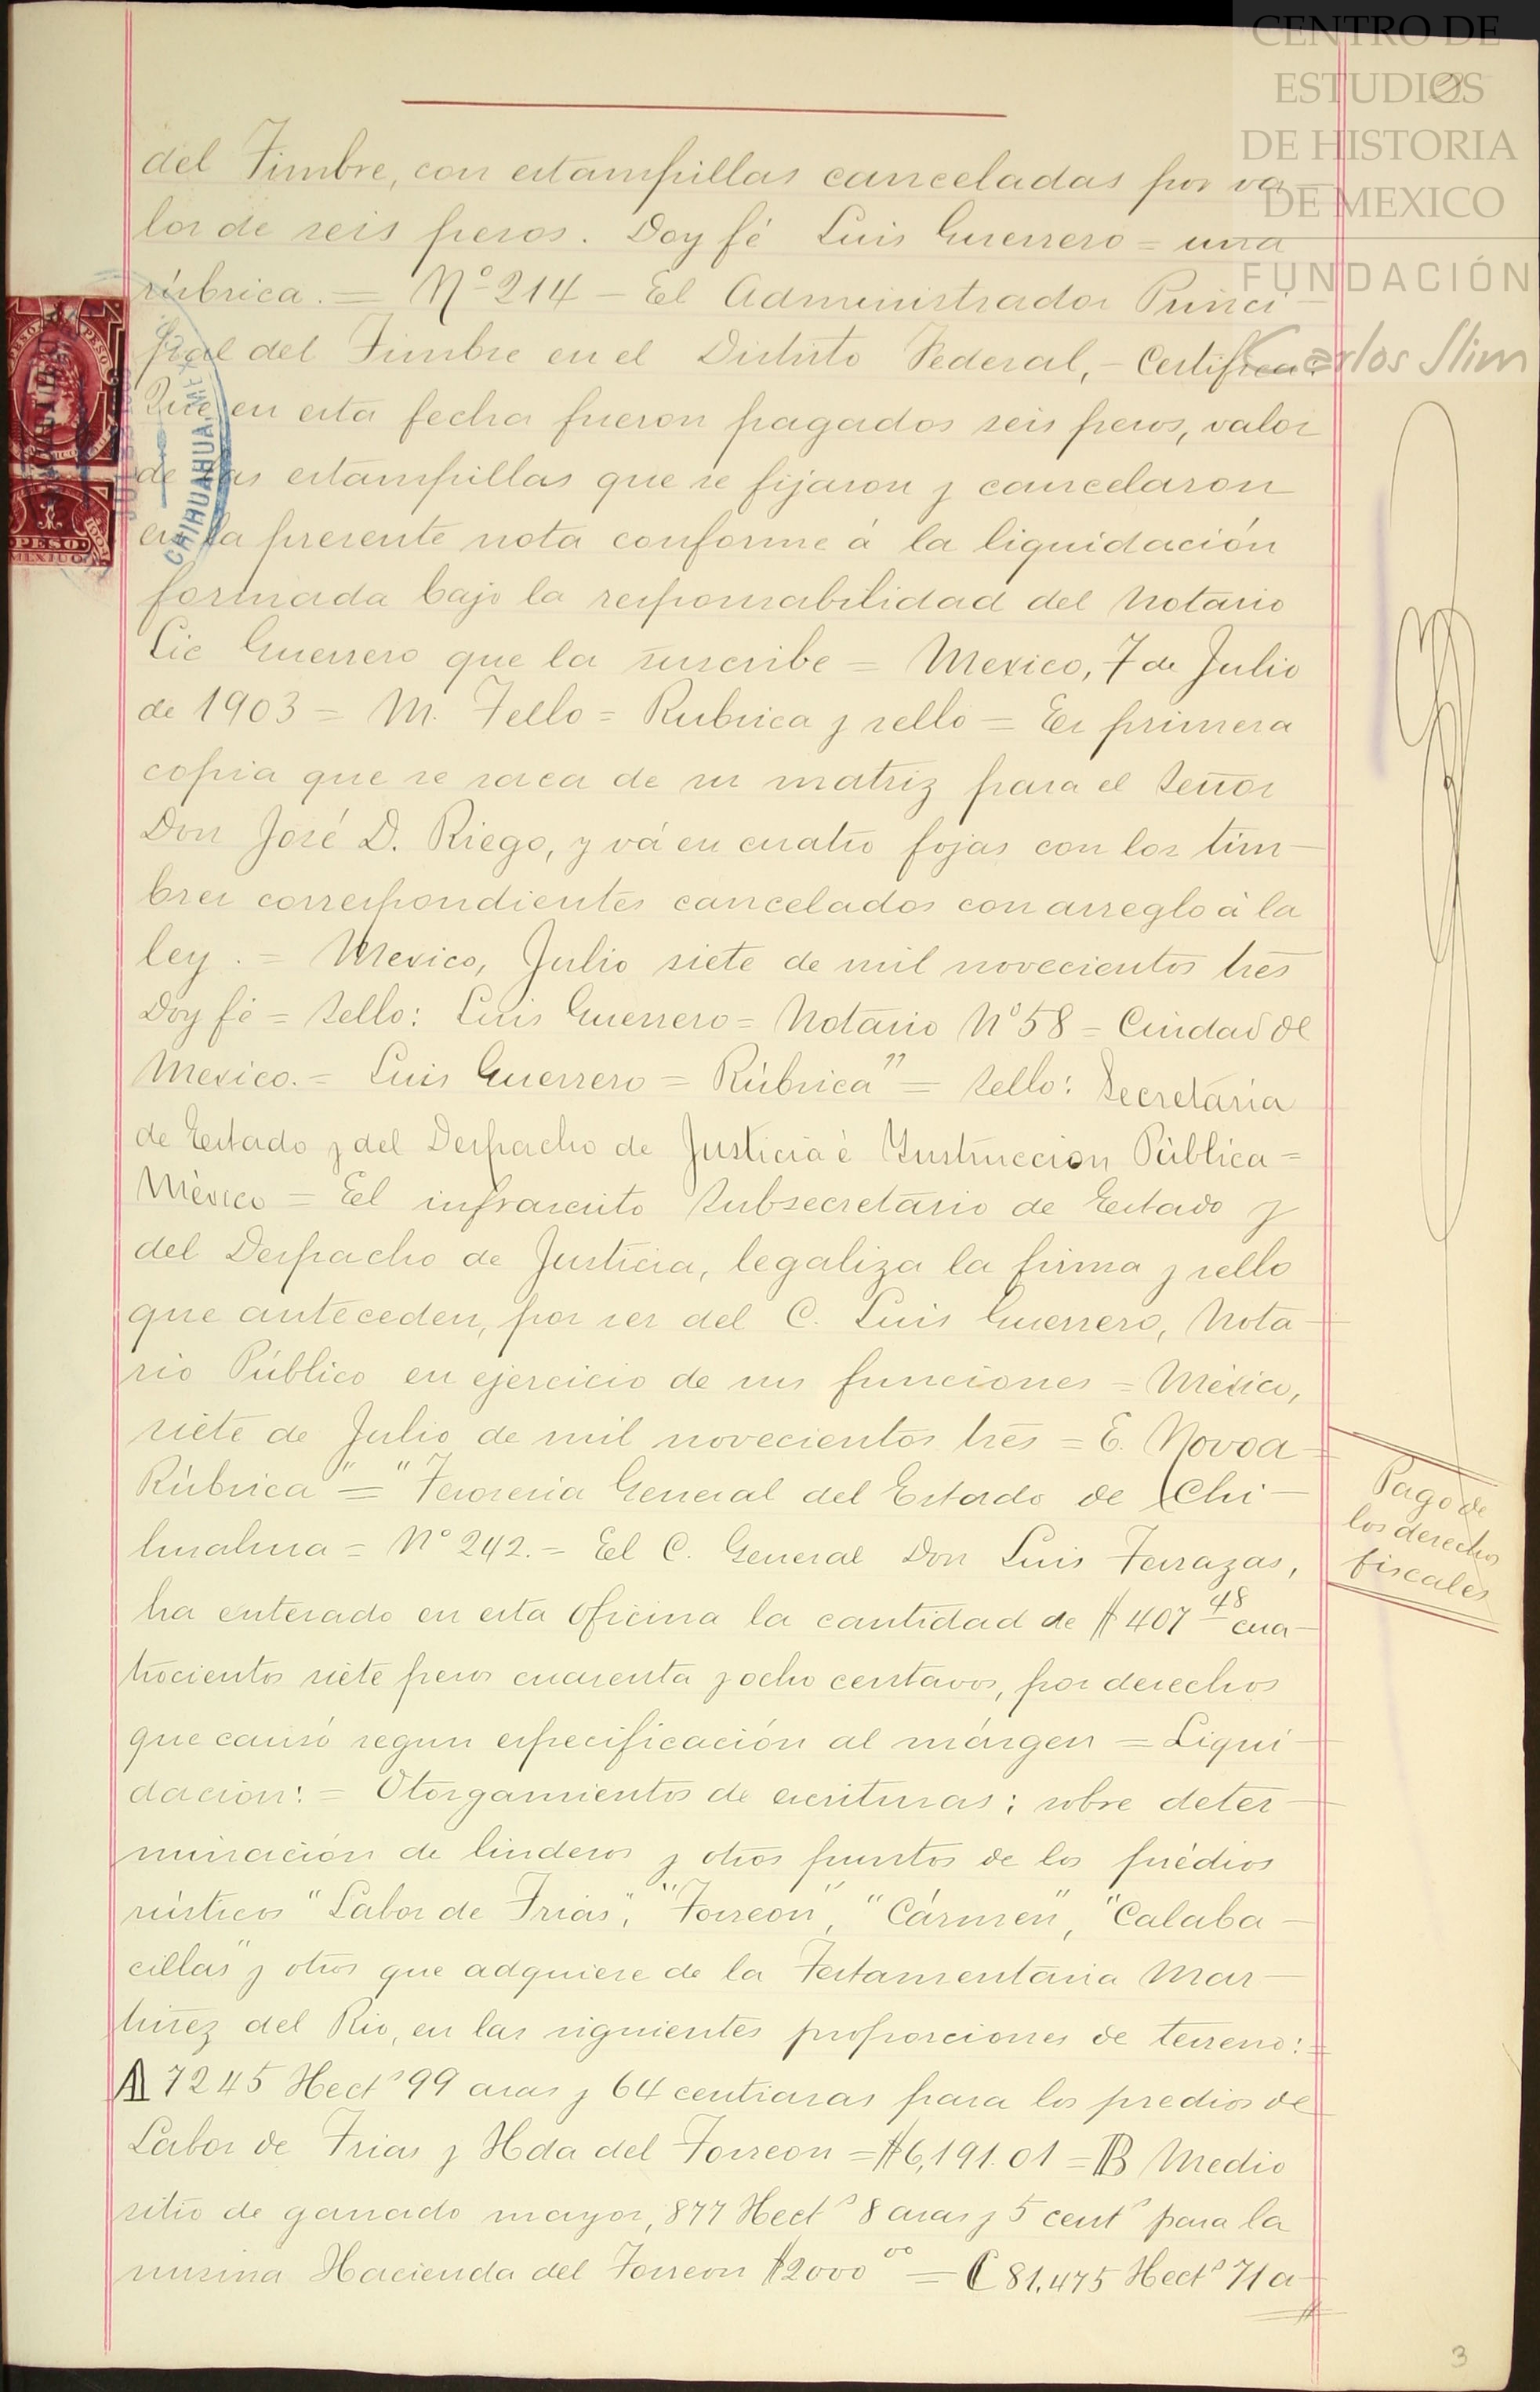 CENTRO DE
ESTUDIOS
DE HISTORIA
DE MEXICO
FUNDACIÓN
Carlos Slim
del Timbre, con estampillas canceladas por va
lor de seis pesos. Doy fé Luis Guerrero = una
rúbrica. = Nº 214 - El Administrador Princi
pal del Timbre en el Distrito Federal, - Certifica:
Que en esta fecha fueron pagados seis pesos, valor
de las estampillas que se fijaron y cancelaron
en la presente nota conforme á la liquidación
formada bajo la responsabilidad del Notario
Lic Guerrero que la suscribe = Mexico, 7 de Julio
de 1903 = M. Tello = Rubrica y sello = Es primera
copia que se saca de su matriz para el Señor
Don José D. Riego, y vá en cuatro fojas con los tim-
bres correspondientes cancelados con arreglo á la
ley. = Mexico, Julio siete de mil novecientos tres
Doy fé = Sello: Luis Guerrero = Notario Nº 58 = Ciudad de
Mexico. = Luis Guerrero = Rúbrica" = Sello: Secretaria
de Estado y del Despacho de Justicia é Ynstruccion Pública =
México = El infrascrito Subsecretario de Estado y
del Despacho de Justicia, legaliza la firma y sello
que anteceden, por ser del C. Luis Guerrero, Nota-
rio Público en ejercicio de sus funciones = México,
siete de Julio de mil novecientos tres = E. Novoa-
Rúbrica" = "Tesoreria General del Estado de Chi-
huahua = Nº 242. = El C. General Don Luis Terrazas,
ha enterado en esta Oficina la cantidad de $ 407 48 cua-
trocientos siete pesos cuarenta y ocho centavos, por derechos
que causó segun especificación al márgen = Liqui-
dacion: = Otorgamientos de escrituras; sobre deter-
minación de linderos y otros puntos de los prédios
rústicos "Labor de Frias", "Torreón", "Cármen", "Calaba-
cillas" y otros que adquiere de la Testamentaria Mar-
tinez del Rio, en las siguientes proporciones de terreno: =
A 7245 Hects 99 aras y 64 centiaras para los predios de
Labor de Frias y Hda del Torreon = $6,191.01 = B Medio
sitio de ganado mayor, 877 Hects 8 aras y 5 cents para la
misma Hacienda del Torreon $2000 00 = C 81,475 Hects 71 a-
Pago de
los derechos
fiscales
CHIHUAHUA, MEX
PESO
MEXICO
3